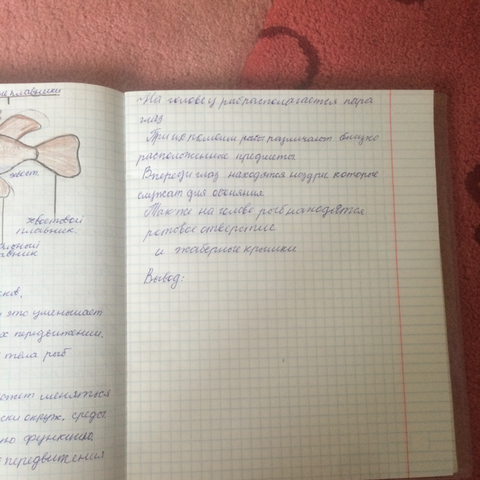 плавники
хвост.
хвостовой
плавник.
ков,
это уменьшает
х передвижении.
тела рыб
может меняться
окруж. среды
функцию
передвижения
На голове у рыб располагается пара
глаз
При их помощи рыбы различают близко
расположенные предметы
Впереди глаз находятся ноздри которое
служат для обоняния
Также на голове рыб находятся
ротовое отверстие
и жаберные крышки
Вывод: